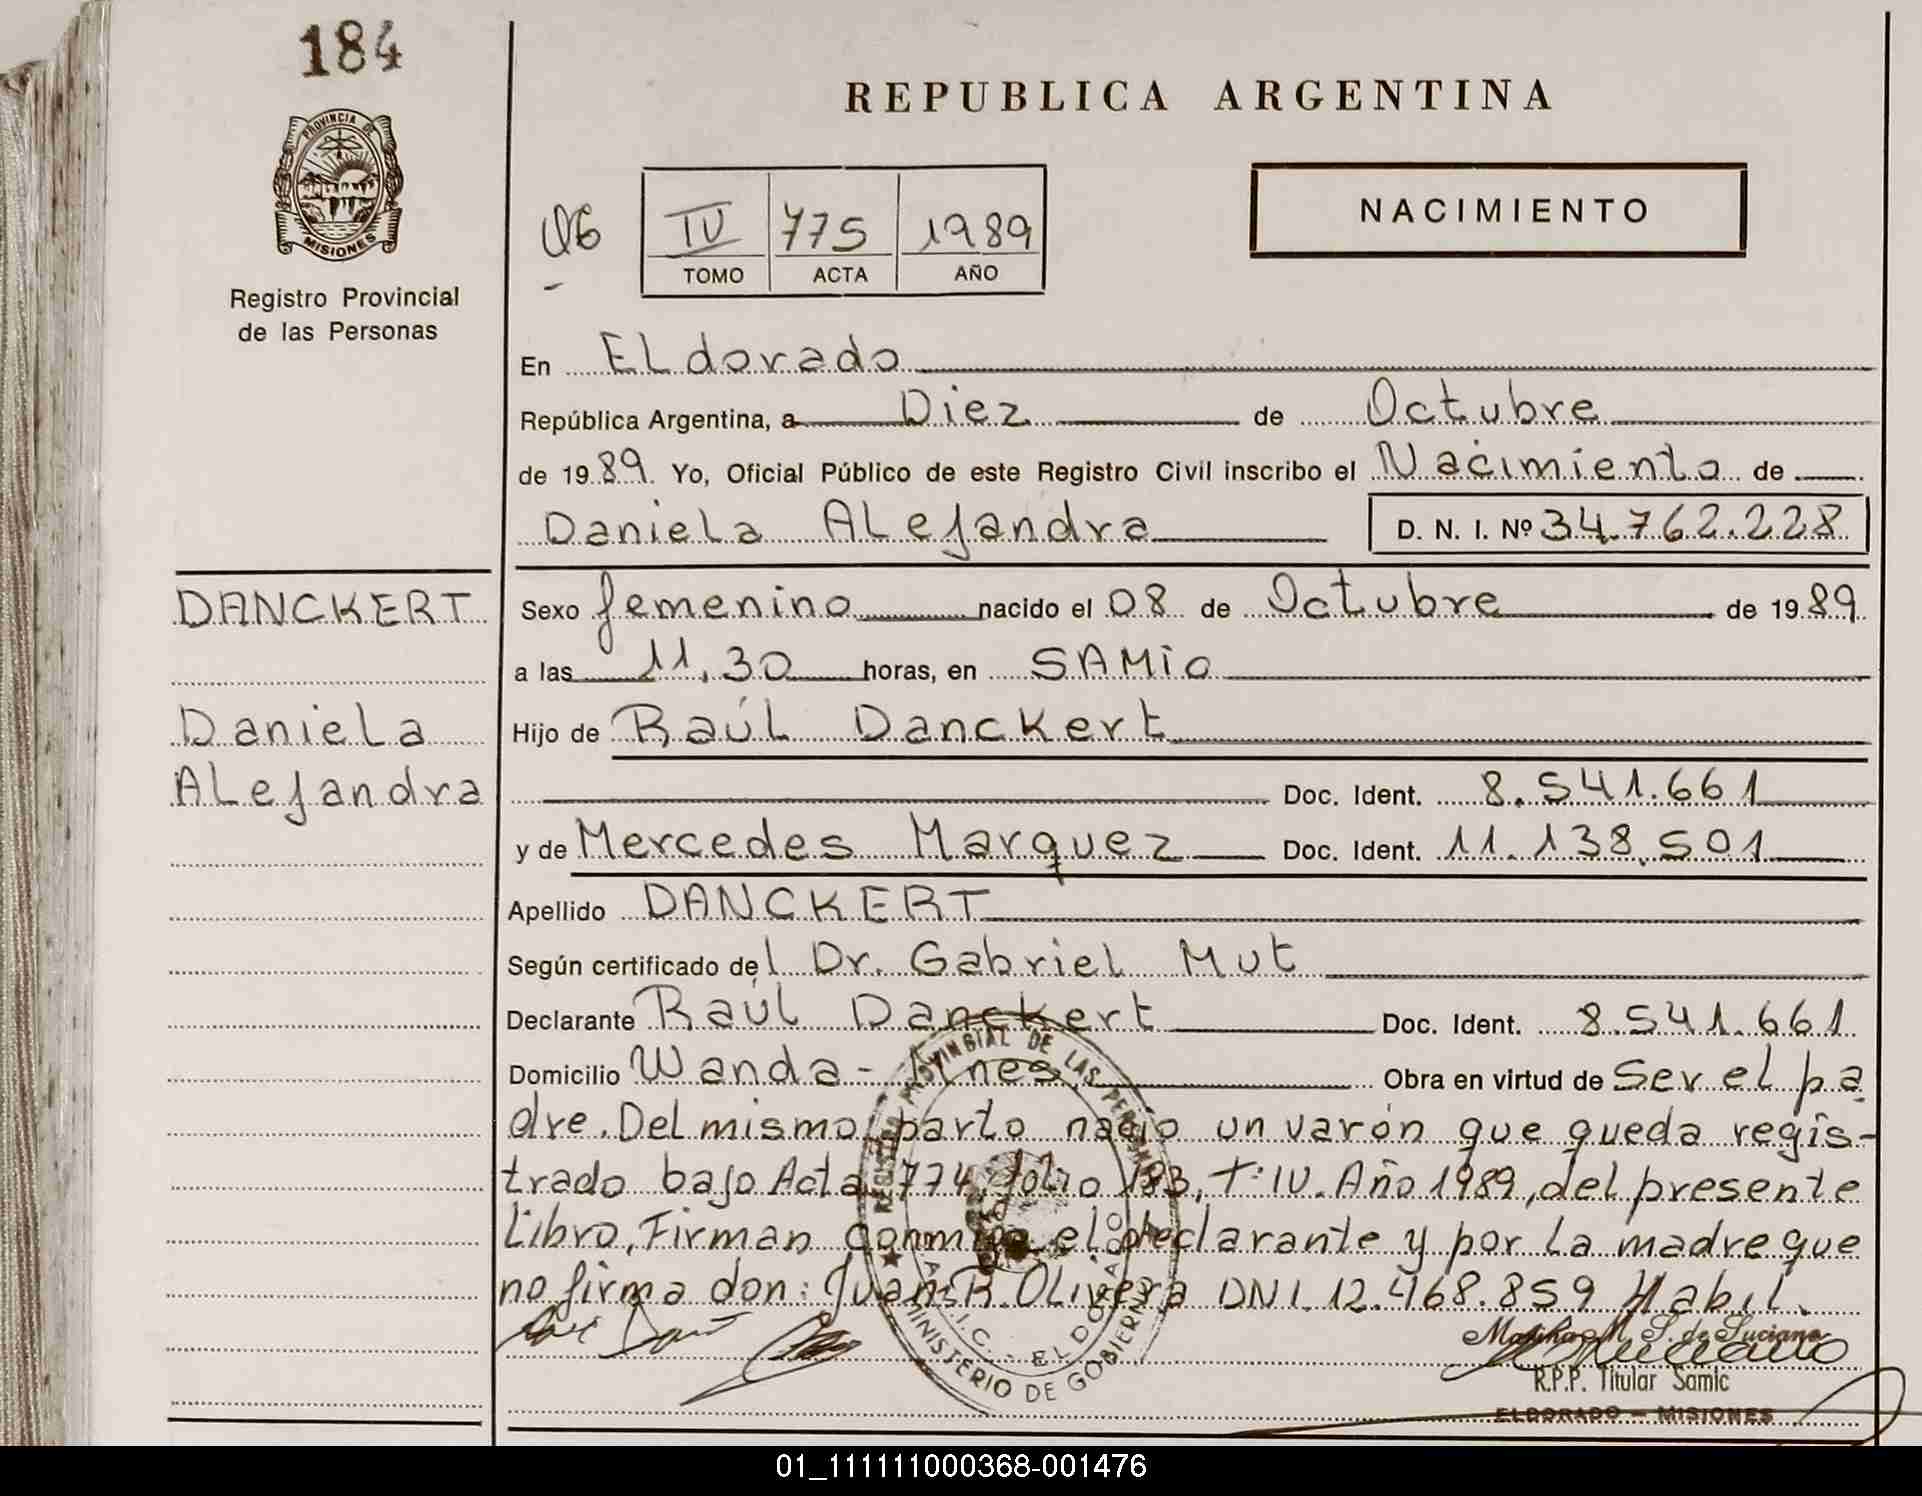 184
REPUBLICA ARGENTINA
PROVINCIA DE
MISIONES
Registro Provincial
de las Personas
06
IV 775 1989
TOMO ACTA AÑO
NACIMIENTO
En ELdorado
República Argentina, a Diez de Octubre
de 1989. Yo, Oficial Público de este Registro Civil inscribo el Nacimiento de
Daniela Alejandra D. N. I. Nº 34.762.228
DANCKERT
Daniela
Alejandra
Sexo femenino nacido el 08 de Octubre de 1989
a las 11.30 horas, en SAMiC
Hijo de Raúl Danckert
Doc. Ident. 8.541.661
y de Mercedes Marquez Doc. Ident. 11.138.501
Apellido DANCKERT
Según certificado del Dr. Gabriel Mut
Declarante Raúl Danckert Doc. Ident. 8.541.661
Domicilio Wanda - Mnes. Obra en virtud de Ser el pa
dre. Del mismo parto nacio un varón que queda regis-
trado bajo Acta 774, folio 183, T: IV. Año 1989, del presente
Libro, Firman conmigo el declarante y por la madre que
no firma don: Juan R. Olivera DNI. 12.468.859 Habil.
REGISTRO PROVINCIAL DE LAS PERSONAS
ELDORADO
MINISTERIO DE GOBIERNO
S. de Luciano
R.P.P. Titular Samic
ELDORADO - MISIONES
01_111111000368-001476